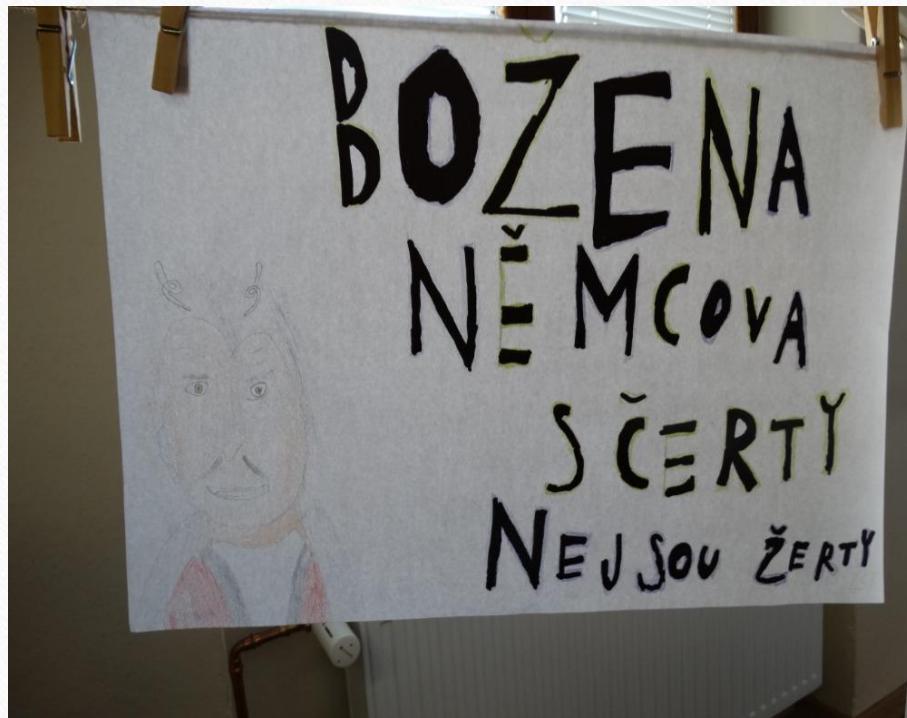 BOŽENA
NĚMCOVA
S ČERTY
NEJSOU ŽERTY